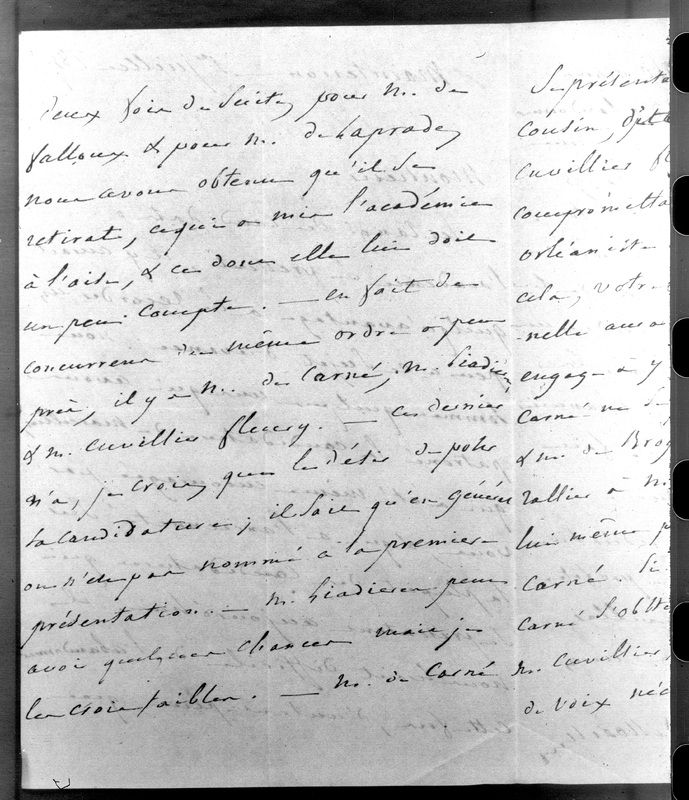 deux fois de suite, pour M. de
falloux & pour M. de Laprade,
nous avons obtenu qu'il se
retirat, ce qui a mis l'académie
à l'aise, & ce dont elle lui doit
un peu compte. — en fait de
concurrens du même ordre à peu
près, il y a M. de Carné, M. Liadières,
& M. Cuvillier fleury. — ce dernier
n'a, je crois, que le désir de poser
sa candidature; il sait qu'en général
on n'est pas nommé à la première
présentation. — M. Liadières peut
avoir quelques chances mais je
les crois faibles. — M. de Carné
se présenta
Cousin, d'
Cuvillier fl
compromettan
orléaniste
cela, votre
nelle auss
engage à y
Carné ne s
& M. de Brog
rallier à M.
lui même p
Carné. Si
Carné s'obst
M. Cuvillier,
de voix néc